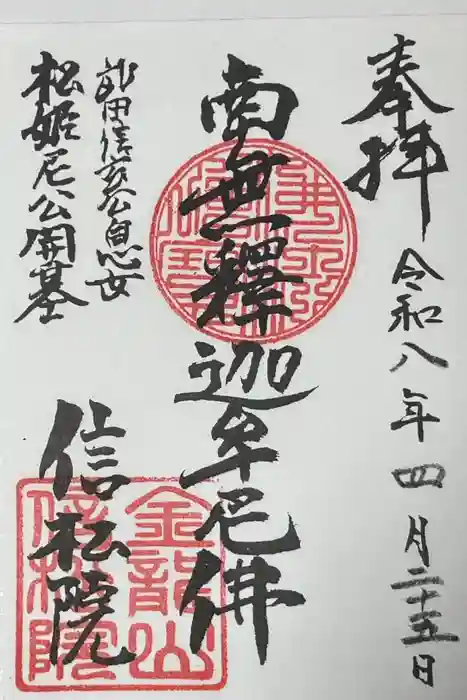 奉拝
令和八年四月二十五日
南無釋迦牟尼佛
武田信玄公息女
松姫尼公開基
信松院
金龍山
信松院